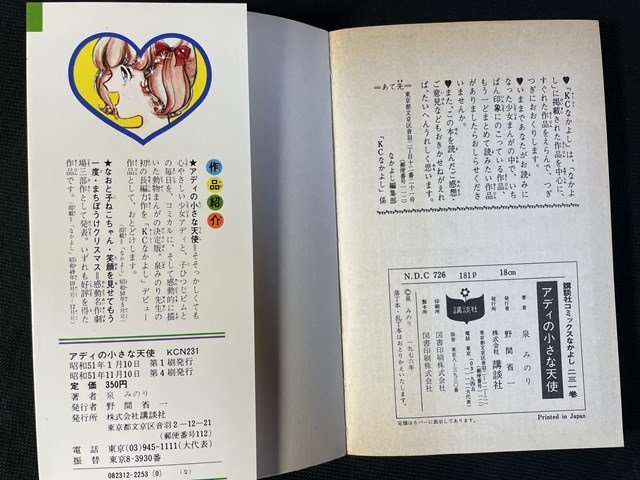 作品紹介
★アディの小さな天使＝そそっかしくても
心やさしい少女アディと、子ひつじピムと
の毎日を、コミカルに、そして感動的に描
いた動物まんがの決定版。泉みのり先生の
初の長編力作を「KCなかよし」デビュー
作品として、おとどけします。
〈掲載＝「なかよし」昭和50年5月号〉
★なおと子ねこちゃん・笑顔を見せてもう
一度・まちぼうけクリスマス＝感動名作劇
場三部作として発表。いずれも好評を得た
作品です。〈掲載＝「なかよし」昭和49年10月号～12月号〉
アディの小さな天使 KCN231
昭和51年1月10日 第1刷発行
昭和51年11月10日 第4刷発行
定価 350円
著者 泉みのり
発行者 野間省一
発行所 株式会社講談社
東京都文京区音羽2－12－21
（郵便番号112）
電話 東京(03)945-1111(大代表)
振替 東京8-3930番
082312-2253 (0) (な)
♥「KCなかよし」は、「なかよ
し」に掲載された作品を中心に、
すぐれた作品をえらんで、つぎ
つぎにおおくりします。
♥いままであなたがお読みに
なった少女まんがの中で、いち
ばん印象にのこっている作品、
もう一どまとめて読みたい作品
がありましたらおしらせくださ
いませんか。
♥また、この本を読んだご感想・
ご意見などもおきかせねがえれ
ば、たいへんうれしく思います。
＝あて先＝
東京都文京区音羽二丁目十二ー二十一号
（郵便番号一一二）
なかよし編集部
「KCなかよし」係
N.D.C 726 181P 18cm
講談社コミックスなかよし 二三一巻
アディの小さな天使
著者 泉みのり
発行者 野間省一
発行所 株式会社 講談社
東京都文京区音羽二－一二－二一
郵便番号 一一二
電話 東京(〇三)九四五
振替 東京八－三九三〇番
講談社
印刷所 図書印刷株式会社
製本所 図書印刷株式会社
©泉みのり 一九七六年
落丁本・乱丁本はおとりかえいたします。
定価はカバーに表示してあります。
Printed in Japan